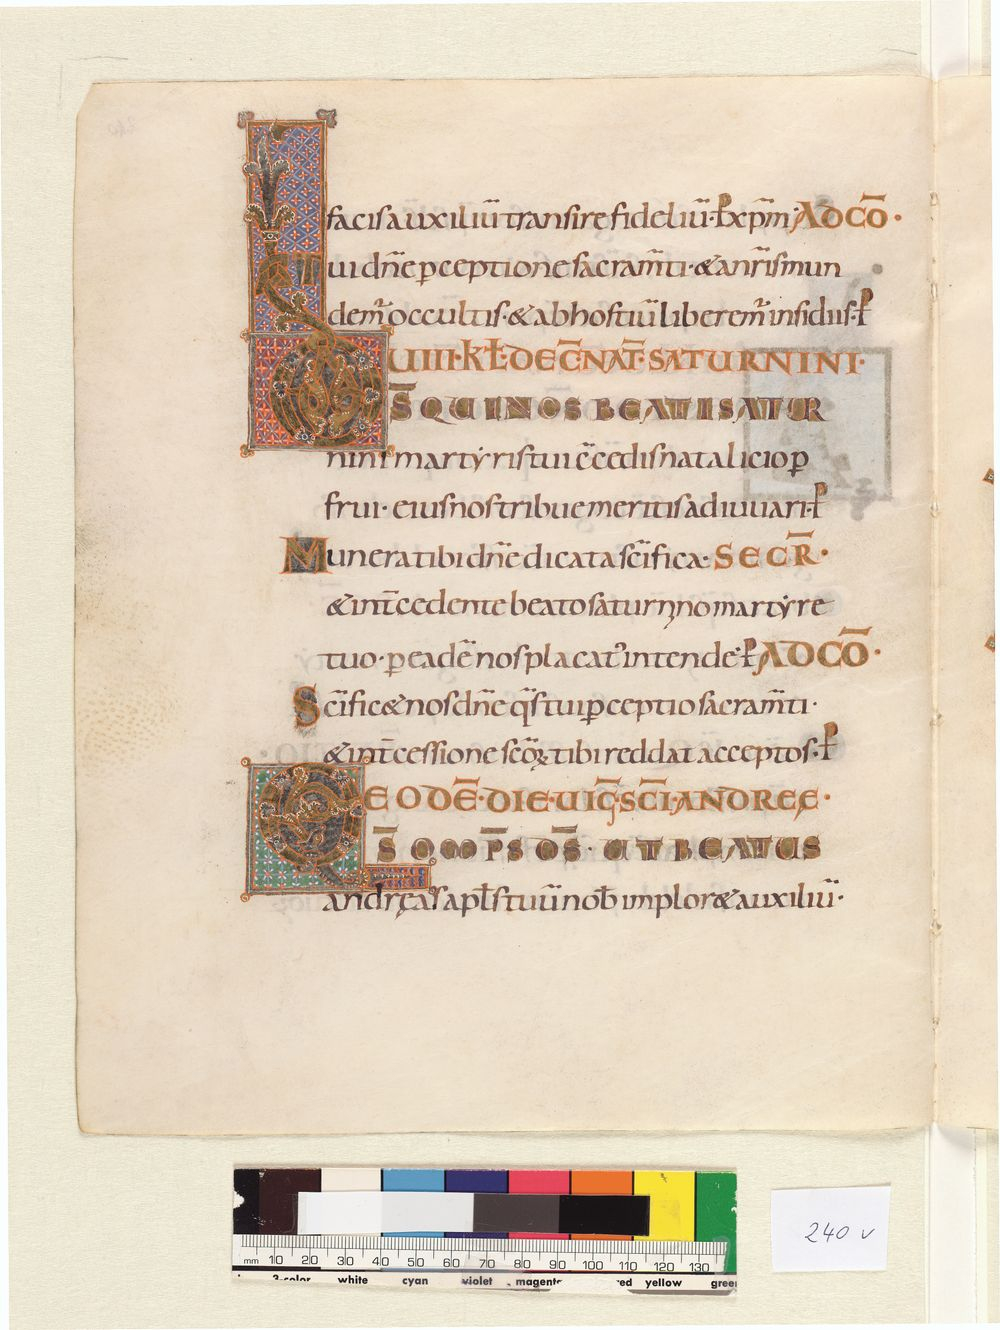 facis auxiliū transire fideliū· ꝑ xp̄m· AD CŌ·
ui dn̄e ꝑceptione sacram̄ti· & a nr̄is mun
dem̄ occultis· & ab hostiū liberem̄ insidiis· ꝑ
UIIII· KŁ· DEC̄ NAT̄· SATURNINI·
D̄S QUI NOS BEATI SATUR
nini martẏris tui c̄cedis natalicio ꝑ
frui· eius nos tribue meritis adiuuari· ꝑ
Munera tibi dn̄e dicata sc̄ifica· SECR̄·
& int̄cedente beato saturnino martẏre
tuo· ꝑ eadē nos placat᾿ intende· ꝑ AD CŌ·
Sc̄ific& nos dn̄e q̄s tui ꝑceptio sacram̄ti·
& int̄cessione sc̄oꝝ tibi reddat acceptos· ꝑ
EODĒ· DIE· UIḠ· SC̄I· ANDREĘ·
Q̄S OMP̄S D̄S· UT BEATUS
andręas apłs tuū nob̄ implor& auxiliū·
mm 10 20 30 40 50 60 70 80 90 100 110 120 130
3-color white cyan violet magenta red yellow green
240 v